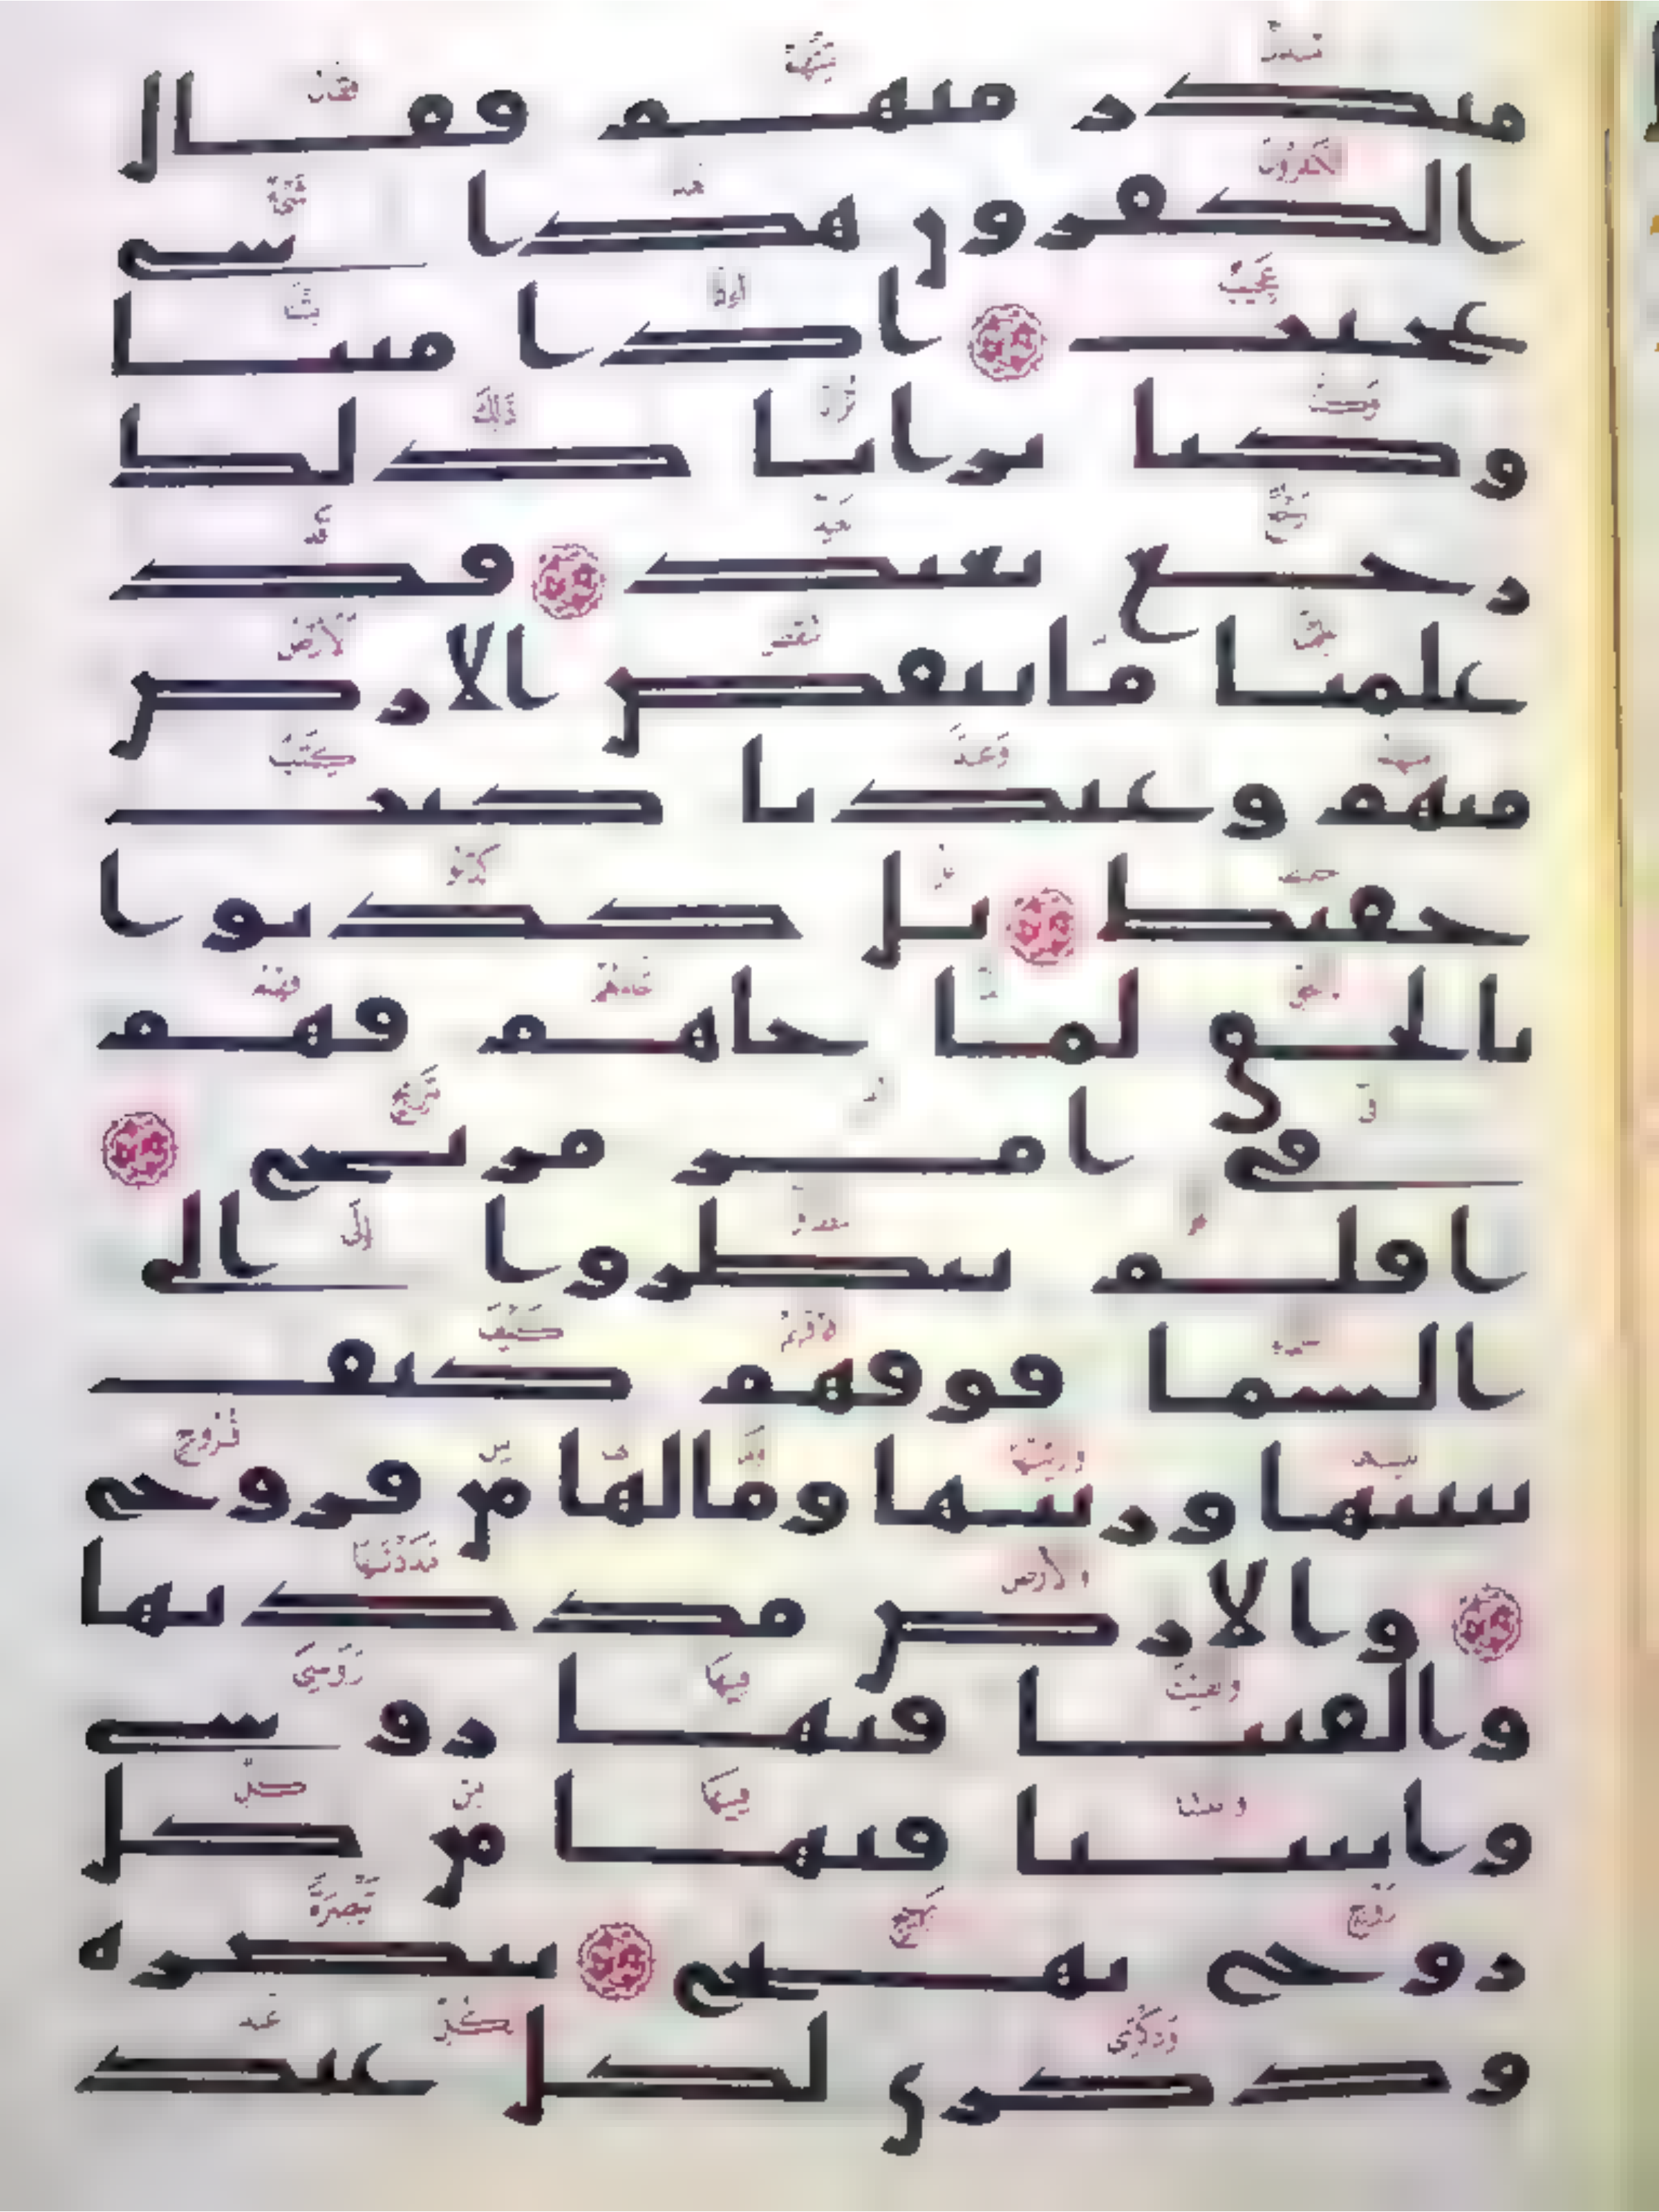 منذر منهم فقال
الكفرون هذا شي
عجيب اذا متنا
وكنا ترابا ذلك
رجع بعيد قد
علمنا ما تنقص الارض
منهم وعندنا كتب
حفيظ بل كذبوا
بالحق لما جاهم فهم
في امر مريج
افلم ينظروا الى
السما فوقهم كيف
بنينها وزينها وما لها من فروج
والارض مددنها
والقينا فيها روسي
وانبتنا فيها من كل
زوج بهيج تبصره
وذكرى لكل عبد